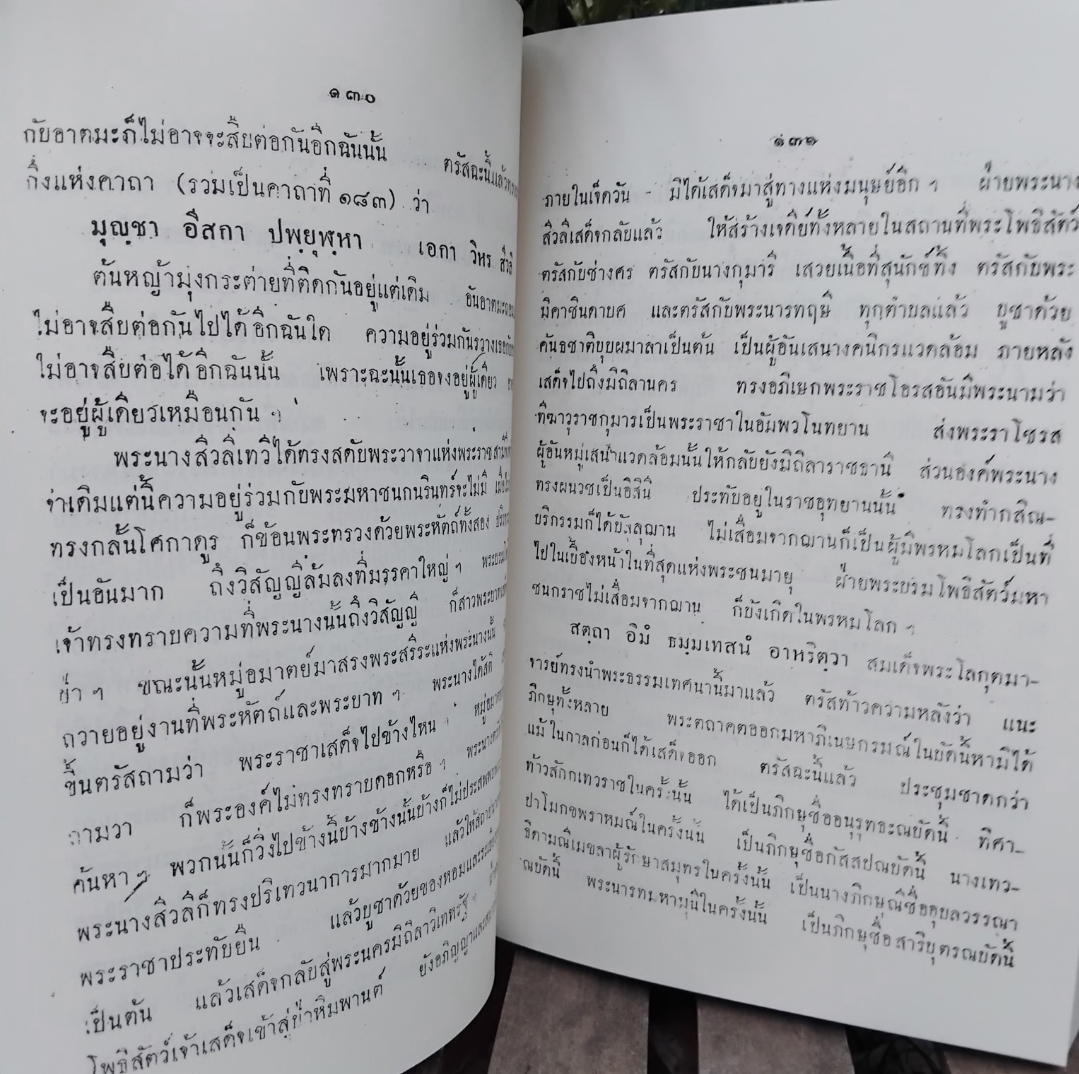 ๑๓๐
กับอาตมะก็ไม่อาจจะสืบต่อกันอีกฉันนั้น ตรัสฉะนี้แล้ว
กึ่งแห่งคาถา (รวมเป็นคาถาที่ ๑๘๓) ว่า
มุญฺชา อีสกา ปพฺยุฬฺหา เอกา วิหร สีวลิ
ต้นหญ้ามุงกระต่ายที่ติดกันอยู่แต่เดิม
ไม่อาจสืบต่อกันไปได้อีกฉันใด ความอยู่ร่วมกันระวางเธอกับ
ไม่อาจสืบต่อได้อีกฉันนั้น เพราะฉะนั้นเธอจงอยู่ผู้เดียว
จะอยู่ผู้เดียวเหมือนกัน ฯ
พระนางสิวลีเทวีได้ทรงสดับพระวาจาแห่งพระราชสามี
ว่าเดิมแต่นี้ความอยู่ร่วมกับพระมหาชนกนรินทร์จะไม่มี
ทรงกลั้นโศกาดูร ก็ข้อนพระทรวงด้วยพระหัตถ์ทั้งสอง
เป็นอันมาก ถึงวิสัญญีล้มลงที่มรรคาใหญ่ ฯ
เจ้าทรงทราบความที่พระนางนั้นถึงวิสัญญี ก็สาวพระบาท
ป่า ฯ ขณะนั้นหมู่อมาตย์มาสรงพระสริระแห่งพระนางนั้น
ถวายอยู่งานที่พระหัตถ์และพระบาท ฯ พระนางได้สติ
ขึ้นตรัสถามว่า พระราชาเสด็จไปข้างไหน หมู่อมาตย์
ถามว่า ก็พระองค์ไม่ทรงทราบดอกหรือ ฯ
ค้นหา ฯ พวกนั้นก็วิ่งไปข้างนี้บ้างข้างนั้นบ้างก็ไม่ประสบ
พระนางสิวลีก็ทรงปริเทวนาการมากมาย
พระราชาประทับยืน แล้วบูชาด้วยของหอมและระเบียบ
เป็นต้น แล้วเสด็จกลับสู่พระนครมิถิลาวิเทหรัฐ ฯ
โพธิสัตว์เจ้าเสด็จเข้าสู่ป่าหิมพานต์ ยังอภิญญาและ
๑๓๑
ภายในเจ็ดวัน มิได้เสด็จมาสู่ทางแห่งมนุษย์อีก ฯ ฝ่ายพระนาง
สิวลีเสด็จกลับแล้ว ให้สร้างเจดีย์ทั้งหลายในสถานที่พระโพธิสัตว์
ตรัสกับช่างศร ตรัสกับนางกุมารี เสวยเนื้อที่สุนักข์ทิ้ง ตรัสกับพระ
มิคาชินดาบศ และตรัสกับพระนารทฤษี ทุกตำบลแล้ว บูชาด้วย
คันธชาติบุบผมาลาเป็นต้น เป็นผู้อันเสนางคนิกรแวดล้อม ภายหลัง
เสด็จไปถึงมิถิลานคร ทรงอภิเษกพระราชโอรสอันมีพระนามว่า
ทีฆาวุราชกุมารเป็นพระราชาในอัมพวโนทยาน ส่งพระราโชรส
ผู้อันหมู่เสนาแวดล้อมนั้นให้กลับยังมิถิลาราชธานี ส่วนองค์พระนาง
ทรงผนวชเป็นอิสินี ประทับอยู่ในราชอุทยานนั้น ทรงทำกสิณ-
บริกรรมก็ได้ยังลุฌาน ไม่เสื่อมจากฌานก็เป็นผู้มีพรหมโลกเป็นที่
ไปในเบื้องหน้าในที่สุดแห่งพระชนมายุ ฝ่ายพระบรมโพธิสัตว์มหา
ชนกราชไม่เสื่อมจากฌาน ก็บังเกิดในพรหมโลก ฯ
สตฺถา อิมํ ธมฺมเทสนํ อาหริตฺวา สมเด็จพระโลกุตมา-
จารย์ทรงนำพระธรรมเทศนานี้มาแล้ว ตรัสท้าวความหลังว่า แนะ
ภิกษุทั้งหลาย พระตถาคตออกมหาภิเนษกรมณ์ในบัดนี้หามิได้
แม้ในกาลก่อนก็ได้เสด็จออก ตรัสฉะนี้แล้ว ประชุมชาดกว่า
ท้าวสักกเทวราชในครั้งนั้น ได้เป็นภิกษุชื่ออนุรุทธะณบัดนี้ ทิศา-
ปาโมกขพราหมณ์ในครั้งนั้น เป็นภิกษุชื่อกัสสปณบัดนี้ นางเทว-
ธิดามณีเมขลาผู้รักษาสมุทรในครั้งนั้น เป็นนางภิกษุณีชื่ออุบลวรรณา
ณบัดนี้ พระนารทมหามุนีในครั้งนั้น เป็นภิกษุชื่อสารีบุตรณบัดนี้